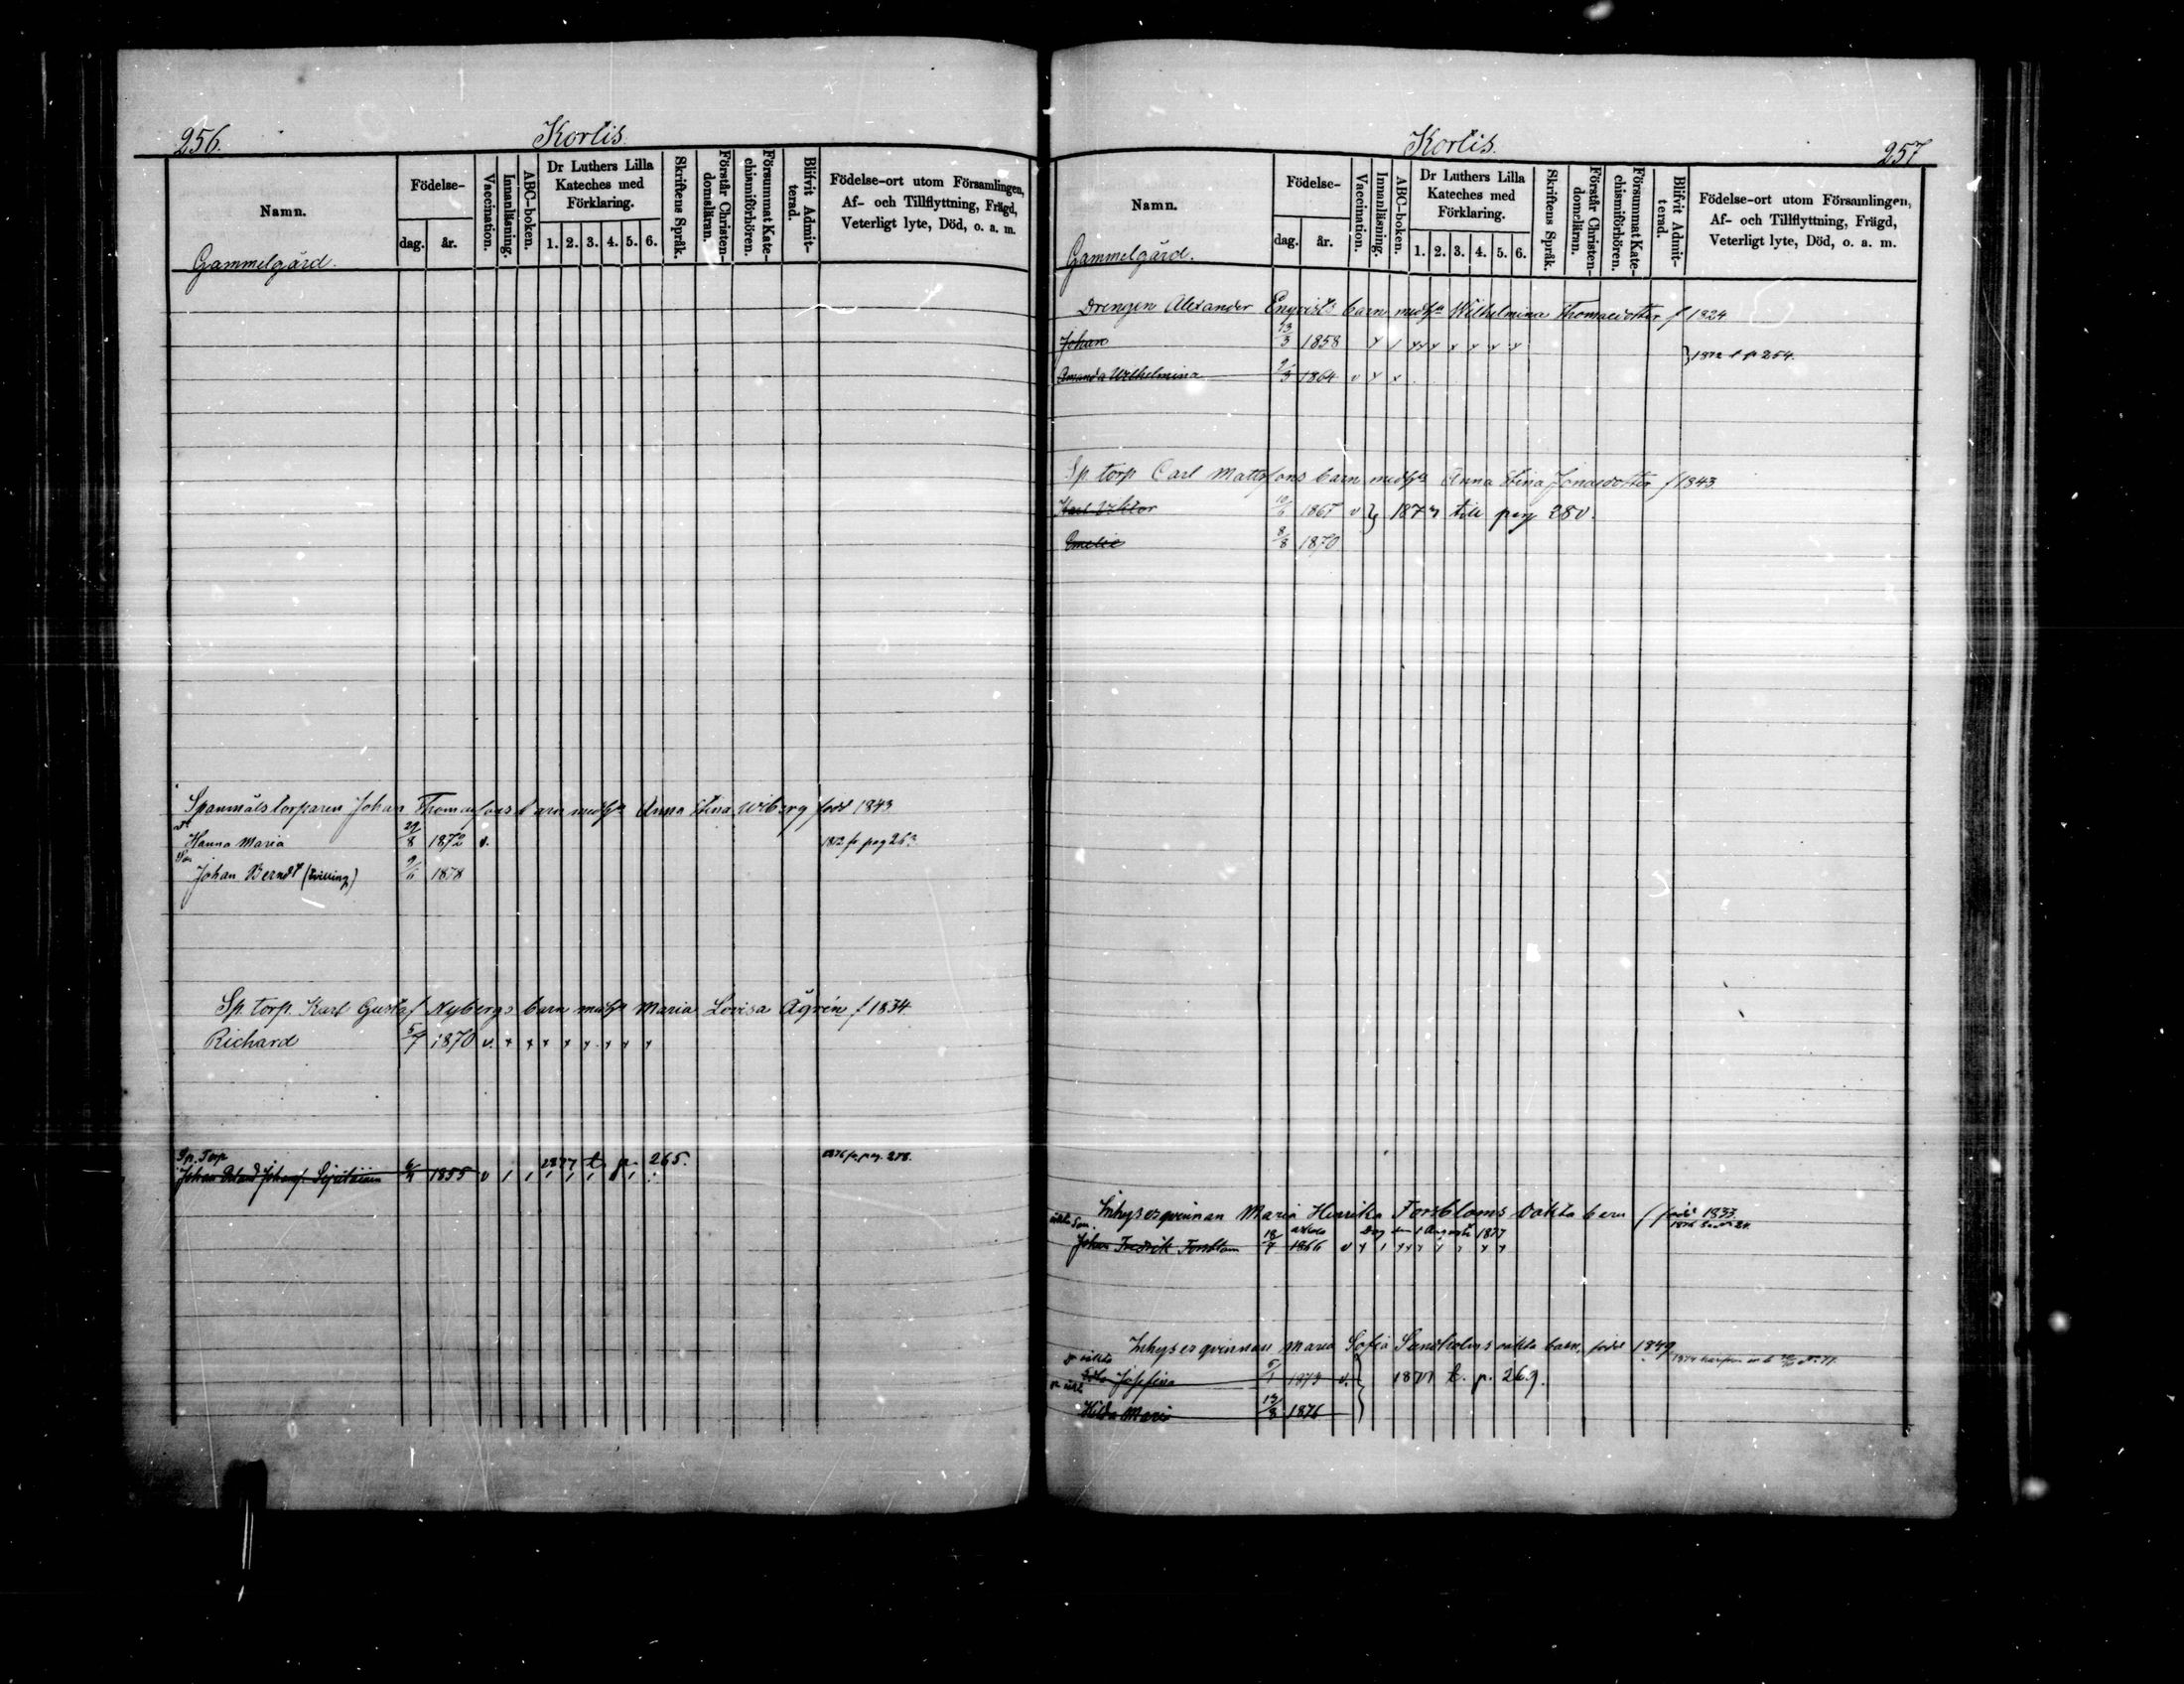 256.
Kortis.
Namn.
Födelse-
dag. år.
Vaccination.
Innanläsning.
ABC-boken.
Dr Luthers Lilla
Kateches med
Förklaring.
1. 2. 3. 4. 5. 6.
Skriftens Språk.
Förstår Christen-
domsläran.
Försummat Kate-
chismiförhören.
Blifvit Admit-
terad.
Födelse-ort utom Församlingen,
Af- och Tillflyttning, Frägd,
Veterligt lyte, Död, o. a. m.
Gammelgård.
Spanmålstorparen Johan Thomassons barn med h. Anna Stina Wiberg född 1843
dr
Hanna Maria 29/8 1872 v. 1872 fr pag 263
Son
Johan Berndt (tvilling) 9/6 1878
Sp. torp. Karl Gustaf Nybergs barn med h. Maria Lovisa Ågrén f 1834.
Richard 5/7 1870 v. x x x x x x x x
Sp. Torp
1877 t. p. 265.
Johan 1855 v 1 1 1 1 1 1 1876 fr pag. 278.
Kortis.
257
Namn.
Födelse-
dag. år.
Vaccination.
Innanläsning.
ABC-boken.
Dr Luthers Lilla
Kateches med
Förklaring.
1. 2. 3. 4. 5. 6.
Skriftens Språk.
Förstår Christen-
domsläran.
Försummat Kate-
chismiförhören.
Blifvit Admit-
terad.
Födelse-ort utom Församlingen,
Af- och Tillflyttning, Frägd,
Veterligt lyte, Död, o. a. m.
Gammelgård.
Drengen Alexander Enqvists barn med h. Wilhelmina Thomasdotter f 1824
Johan 13/3 1858 x 1 x x x x x x x
1872 t p 254.
Amanda Wilhelmina 9/3 1864 v x x
Sp torp Carl Mattssons barn med h. Anna Stina Jonasdotter f 1843.
Karl Viktor 10/6 1867 v } 1873 till pag 280.
Emelie 8/8 1870
Inhysesqvinnan Maria Henrika Forsbloms oäkta barn född 1833.
oäkta Son. afled den 1 Augusti 1877
Johan Fredrik Forsblom 18/7 1866 v x 1 x x x
Inhysesqvinnan Maria Sofia Sundholms oäkta barn, född 1849
dr oäkta
Josefina 5/1 1873 v. 1877 t. p. 269.
dr oäkt
Hilda Maria 13/8 1876